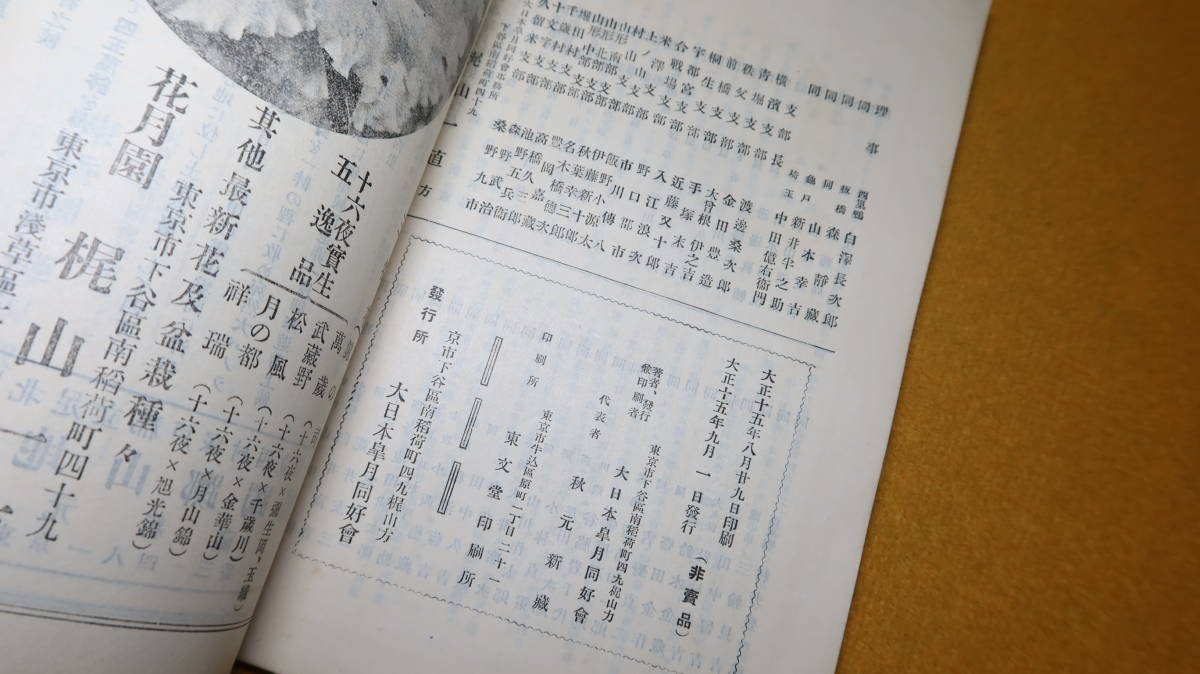 理事
同
同
同
同
橫濱支部長
靑堀支部
秩父支部
前橋支部
桐生支部
宇都宮支部
合戰場支部
米澤支部
上ノ山支部
村山支部
山形南部支部
山形北部支部
堀田村支部
千歲村支部
十文字支部
久米支部
四巢鴨 白澤長次郎
板橋 森靜藏
同 山本幸吉
龜戶 新井半之助
埼玉 中田億右衞門
渡邊桑次郎
金田豊造
大曾根伊之吉
手塚末吉
近藤又十郎
入江浪次
野口郡市
市川傳八
飯野小源太
伊藤新十郎
秋葉幸三郎
名木橋德次
豐岡嘉藏
高橋久郎
池野五兵衞
森野武治
桑野九市
大日本皐月同好會事務所
下谷區南稻荷町四十九
梶山一直方
大正十五年八月廿九日印刷
大正十五年九月一日發行
（非賣品）
東京市下谷區南稻荷町四九梶山方
著者、發行兼印刷者 大日本皐月同好會
代表者 秋元新藏
東京市牛込區原町一丁目二十一
印刷所 東文堂印刷所
京市下谷區南稻荷町四九梶山方
發行所 大日本皐月同好會
十六夜實生
五逸品
萬歲（十六夜×彌生岡、玉織）
武藏野（十六夜×千歲川）
松風（十六夜×金華山）
月の都（十六夜×月山錦）
祥瑞（十六夜×旭光錦）
其他最新花及盆栽種々
東京市下谷區南稻荷町四十九
花月園 梶山一
東京市淺草區